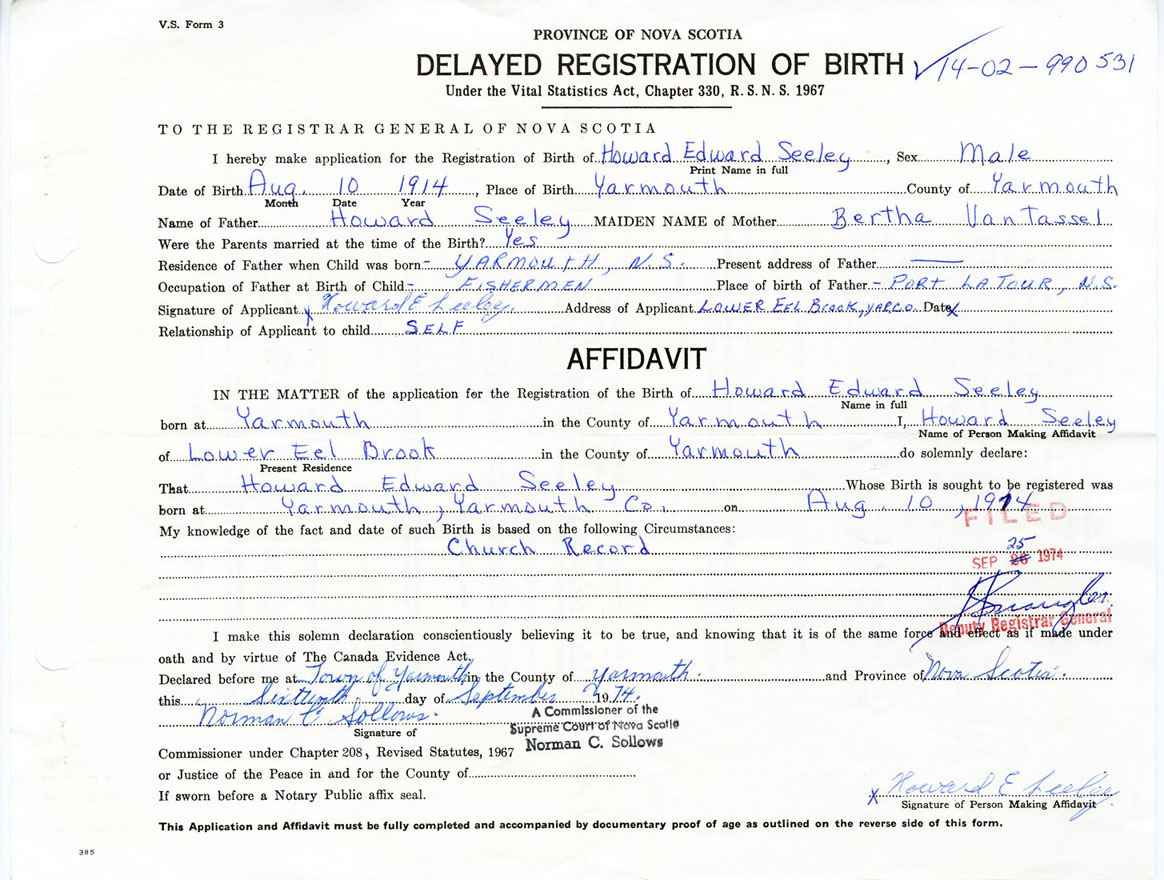 V.S. Form 3
PROVINCE OF NOVA SCOTIA
DELAYED REGISTRATION OF BIRTH ✓14-02-990531
Under the Vital Statistics Act, Chapter 330, R.S.N.S. 1967
TO THE REGISTRAR GENERAL OF NOVA SCOTIA
I hereby make application for the Registration of Birth of Howard Edward Seeley, Sex Male
Print Name in full
Date of Birth Aug. 10 1914, Place of Birth Yarmouth County of Yarmouth
Month Date Year
Name of Father Howard Seeley MAIDEN NAME of Mother Bertha VanTassel
Were the Parents married at the time of the Birth? Yes
Residence of Father when Child was born- YARMOUTH, N.S. Present address of Father ——
Occupation of Father at Birth of Child- FISHERMEN Place of birth of Father - PORT LATOUR, N.S.
Signature of Applicant x Howard E Seeley. Address of Applicant LOWER EEL BROOK, YAR.CO. Date x
Relationship of Applicant to child SELF
AFFIDAVIT
IN THE MATTER of the application for the Registration of the Birth of Howard Edward Seeley
Name in full
born at Yarmouth in the County of Yarmouth I, Howard Seeley
Name of Person Making Affidavit
of Lower Eel Brook in the County of Yarmouth do solemnly declare:
Present Residence
That Howard Edward Seeley Whose Birth is sought to be registered was
born at Yarmouth, Yarmouth Co. on Aug. 10, 1914
FILED
My knowledge of the fact and date of such Birth is based on the following Circumstances:
Church Record
25
SEP 26 1974
Deputy Registrar General
I make this solemn declaration conscientiously believing it to be true, and knowing that it is of the same force and effect as if made under
oath and by virtue of The Canada Evidence Act.
Declared before me at Town of Yarmouth in the County of Yarmouth. and Province of Nova Scotia.
this Sixteenth day of September 1974.
Norman C Sollows.
Signature of
A Commissioner of the
Supreme Court of Nova Scotia
Norman C. Sollows
Commissioner under Chapter 208, Revised Statutes, 1967
or Justice of the Peace in and for the County of
If sworn before a Notary Public affix seal.
x Howard E Seeley
Signature of Person Making Affidavit
This Application and Affidavit must be fully completed and accompanied by documentary proof of age as outlined on the reverse side of this form.
385